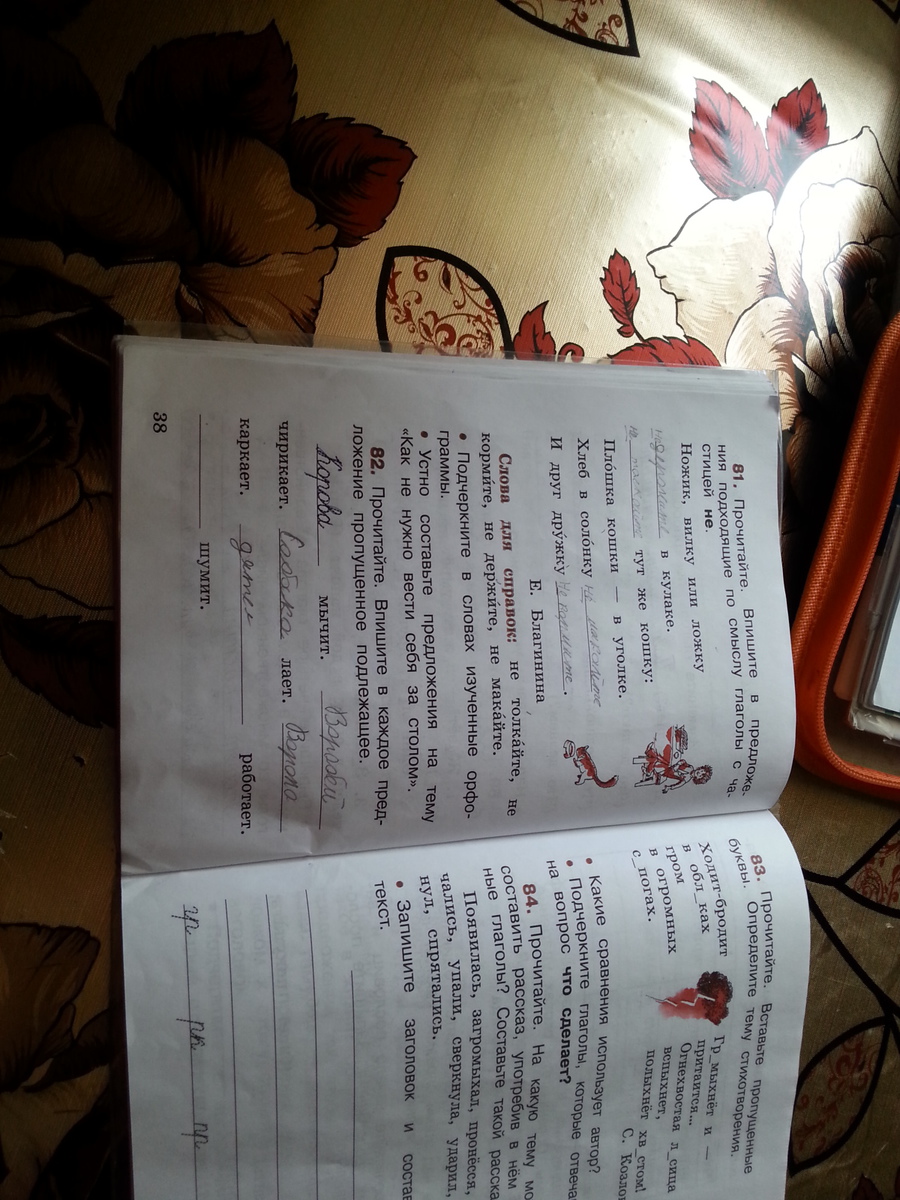 81. Прочитайте. Впишите в предложе-
ния подходящие по смыслу глаголы с ча-
стицей не.
Ножик, вилку или ложку
не держите в кулаке.
не толкайте тут же кошку:
Пло́шка кошки — в уголке.
Хлеб в соло́нку не макайте
И друг дру́жку .
Е. Благинина
Слова для справок: не толка́йте, не
корми́те, не держи́те, не мака́йте.
• Подчеркните в словах изученные орфо-
граммы.
• Устно составьте предложения на тему
«Как не нужно вести себя за столом».
82. Прочитайте. Впишите в каждое пред-
ложение пропущенное подлежащее.
Корова мычит. Воробей
чирикает. Собака лает. Ворона
каркает. дятел работает.
____ шумит.
38
83. Прочитайте. Вставьте пропущенные
буквы. Определите тему стихотворения.
Ходит-бродит
в обл_ках
гром
в огромных
с_погах.
Гр_мыхнёт и —
притаится...
Огнехвостая л_сица
вспыхнет,
полыхнёт хв_стом!
С. Козлов
• Какие сравнения использует автор?
• Подчеркните глаголы, которые отвеча
на вопрос что сделает?
84. Прочитайте. На какую тему мо
составить рассказ, употребив в нём
ные глаголы? Составьте такой расска
Появилась, загромыхал, пронёсся,
чались, упали, сверкнула, ударил,
нул, спрятались.
• Запишите заголовок и состав
текст.